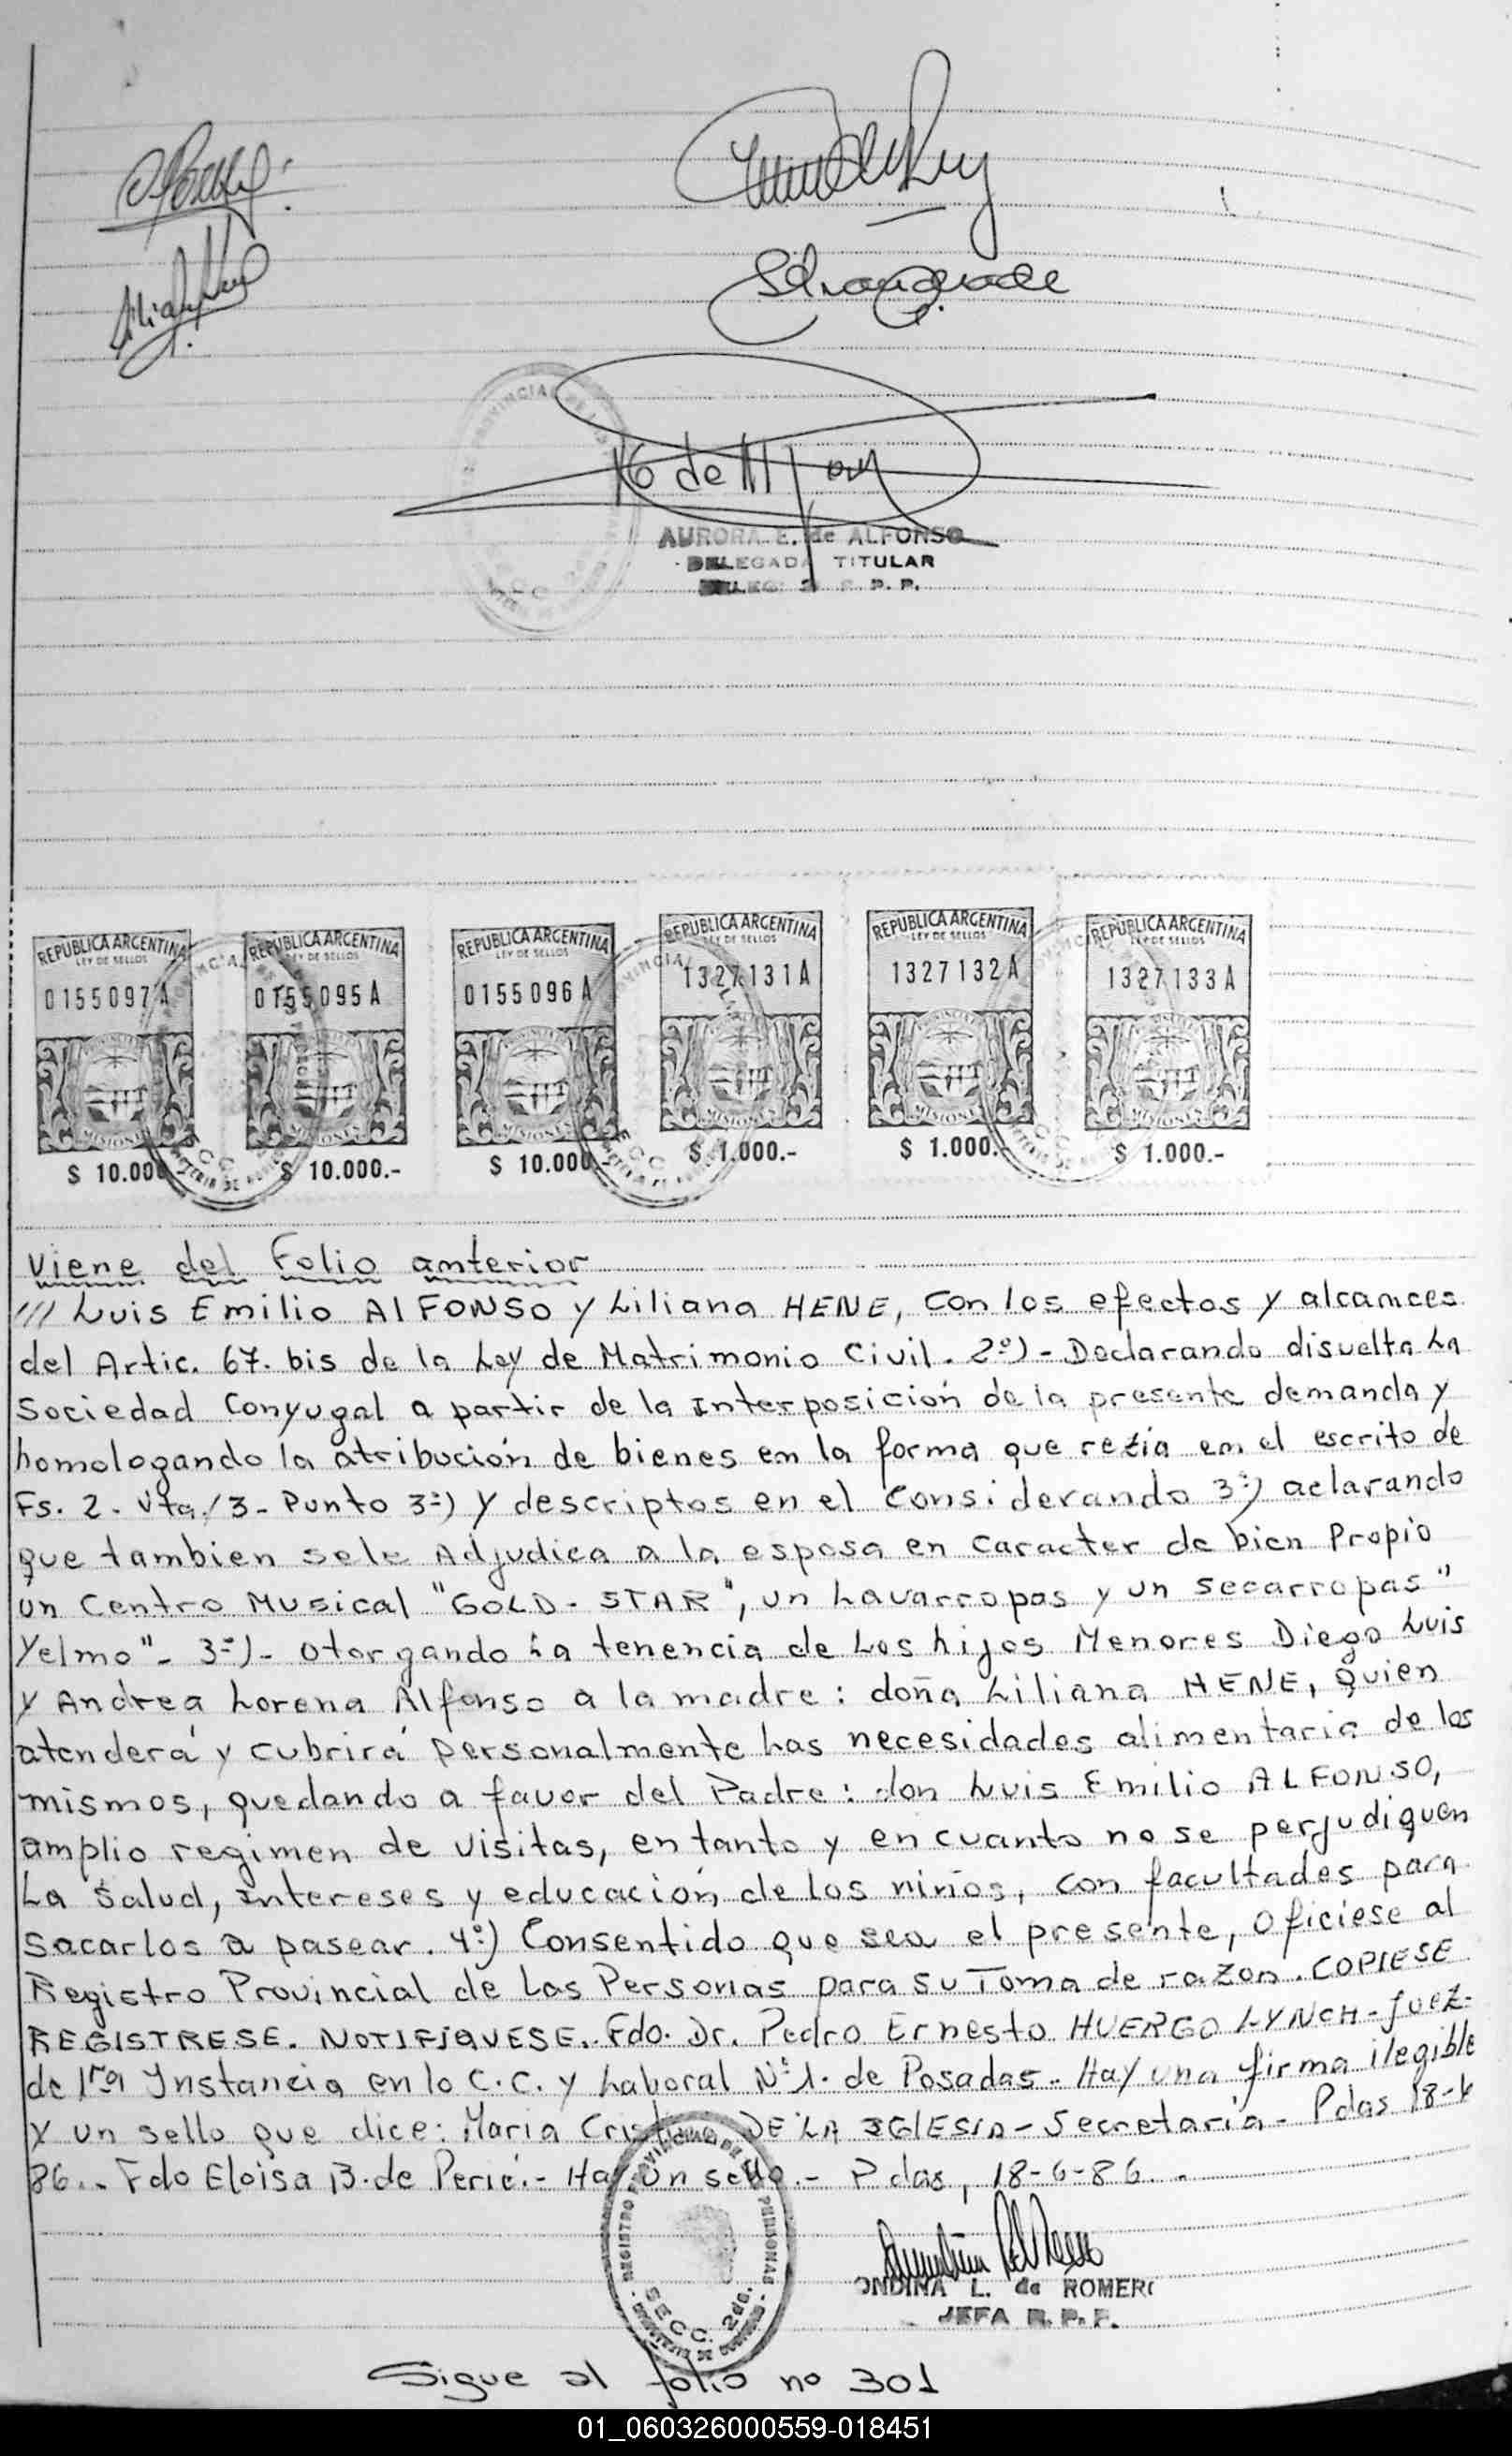 16 de
AURORA E. de ALFONSO
DELEGADA TITULAR
R. P. P.
REPUBLICA ARGENTINA
LEY DE SELLOS
0155097 A
MISIONES
$ 10.000.-
REPUBLICA ARGENTINA
LEY DE SELLOS
0155095 A
MISIONES
$ 10.000.-
REPUBLICA ARGENTINA
LEY DE SELLOS
0155096 A
MISIONES
$ 10.000.-
REPUBLICA ARGENTINA
LEY DE SELLOS
1327131 A
MISIONES
$ 1.000.-
REPUBLICA ARGENTINA
LEY DE SELLOS
1327132 A
MISIONES
$ 1.000.-
REPUBLICA ARGENTINA
LEY DE SELLOS
1327133 A
MISIONES
$ 1.000.-
Viene del Folio anterior
/// Luis Emilio AlFONSO y Liliana HENE, con los efectos y alcances
del Artic. 67. bis de la Ley de Matrimonio Civil. 2º)- Declarando disuelta La
Sociedad Conyugal a partir de la Interposición de la presente demanda y
homologando la atribución de bienes en la forma que rezia en el escrito de
Fs. 2. Vta./3- Punto 3º) y descriptos en el Considerando 3º) aclarando
que tambien sele Adjudica a la esposa en Caracter de bien Propio
un Centro Musical "GOLD-STAR", un Lavarropas y un Secarropas"
Yelmo"- 3º)- Otorgando La tenencia de Los hijos Menores Diego Luis
y Andrea Lorena Alfonso a la madre: doña Liliana HENE, Quien
atenderá y cubrirá personalmente Las necesidades alimentaria de los
mismos, quedando a favor del Padre: don Luis Emilio ALFONSO,
amplio regimen de visitas, en tanto y en cuanto no se perjudiquen
La Salud, Intereses y educación de los niños, con facultades para
Sacarlos a pasear. 4º) Consentido que sea el presente, Oficiese al
Registro Provincial de Las Personas para su Toma de razon. COPIESE
REGISTRESE. NOTIFIQUESE. Fdo. Dr. Pedro Ernesto HUERGO LYNCH-Juez-
de 1ra Instancia en lo C.C. y Laboral Nº1. de Posadas. Hay una firma ilegible
y un sello que dice: Maria Cristina DE LA IGLESIA-Secretaria- Pdas 18-6
86.. Fdo Eloisa B. de Perié.- Hay un sello.- Pdas, 18-6-86.-
REGISTRO PROVINCIAL DE LAS PERSONAS
SECC. 2da.
ONDINA L. de ROMERO
JEFA R. P. P.
Sigue al folio nº 301
01_060326000559-018451